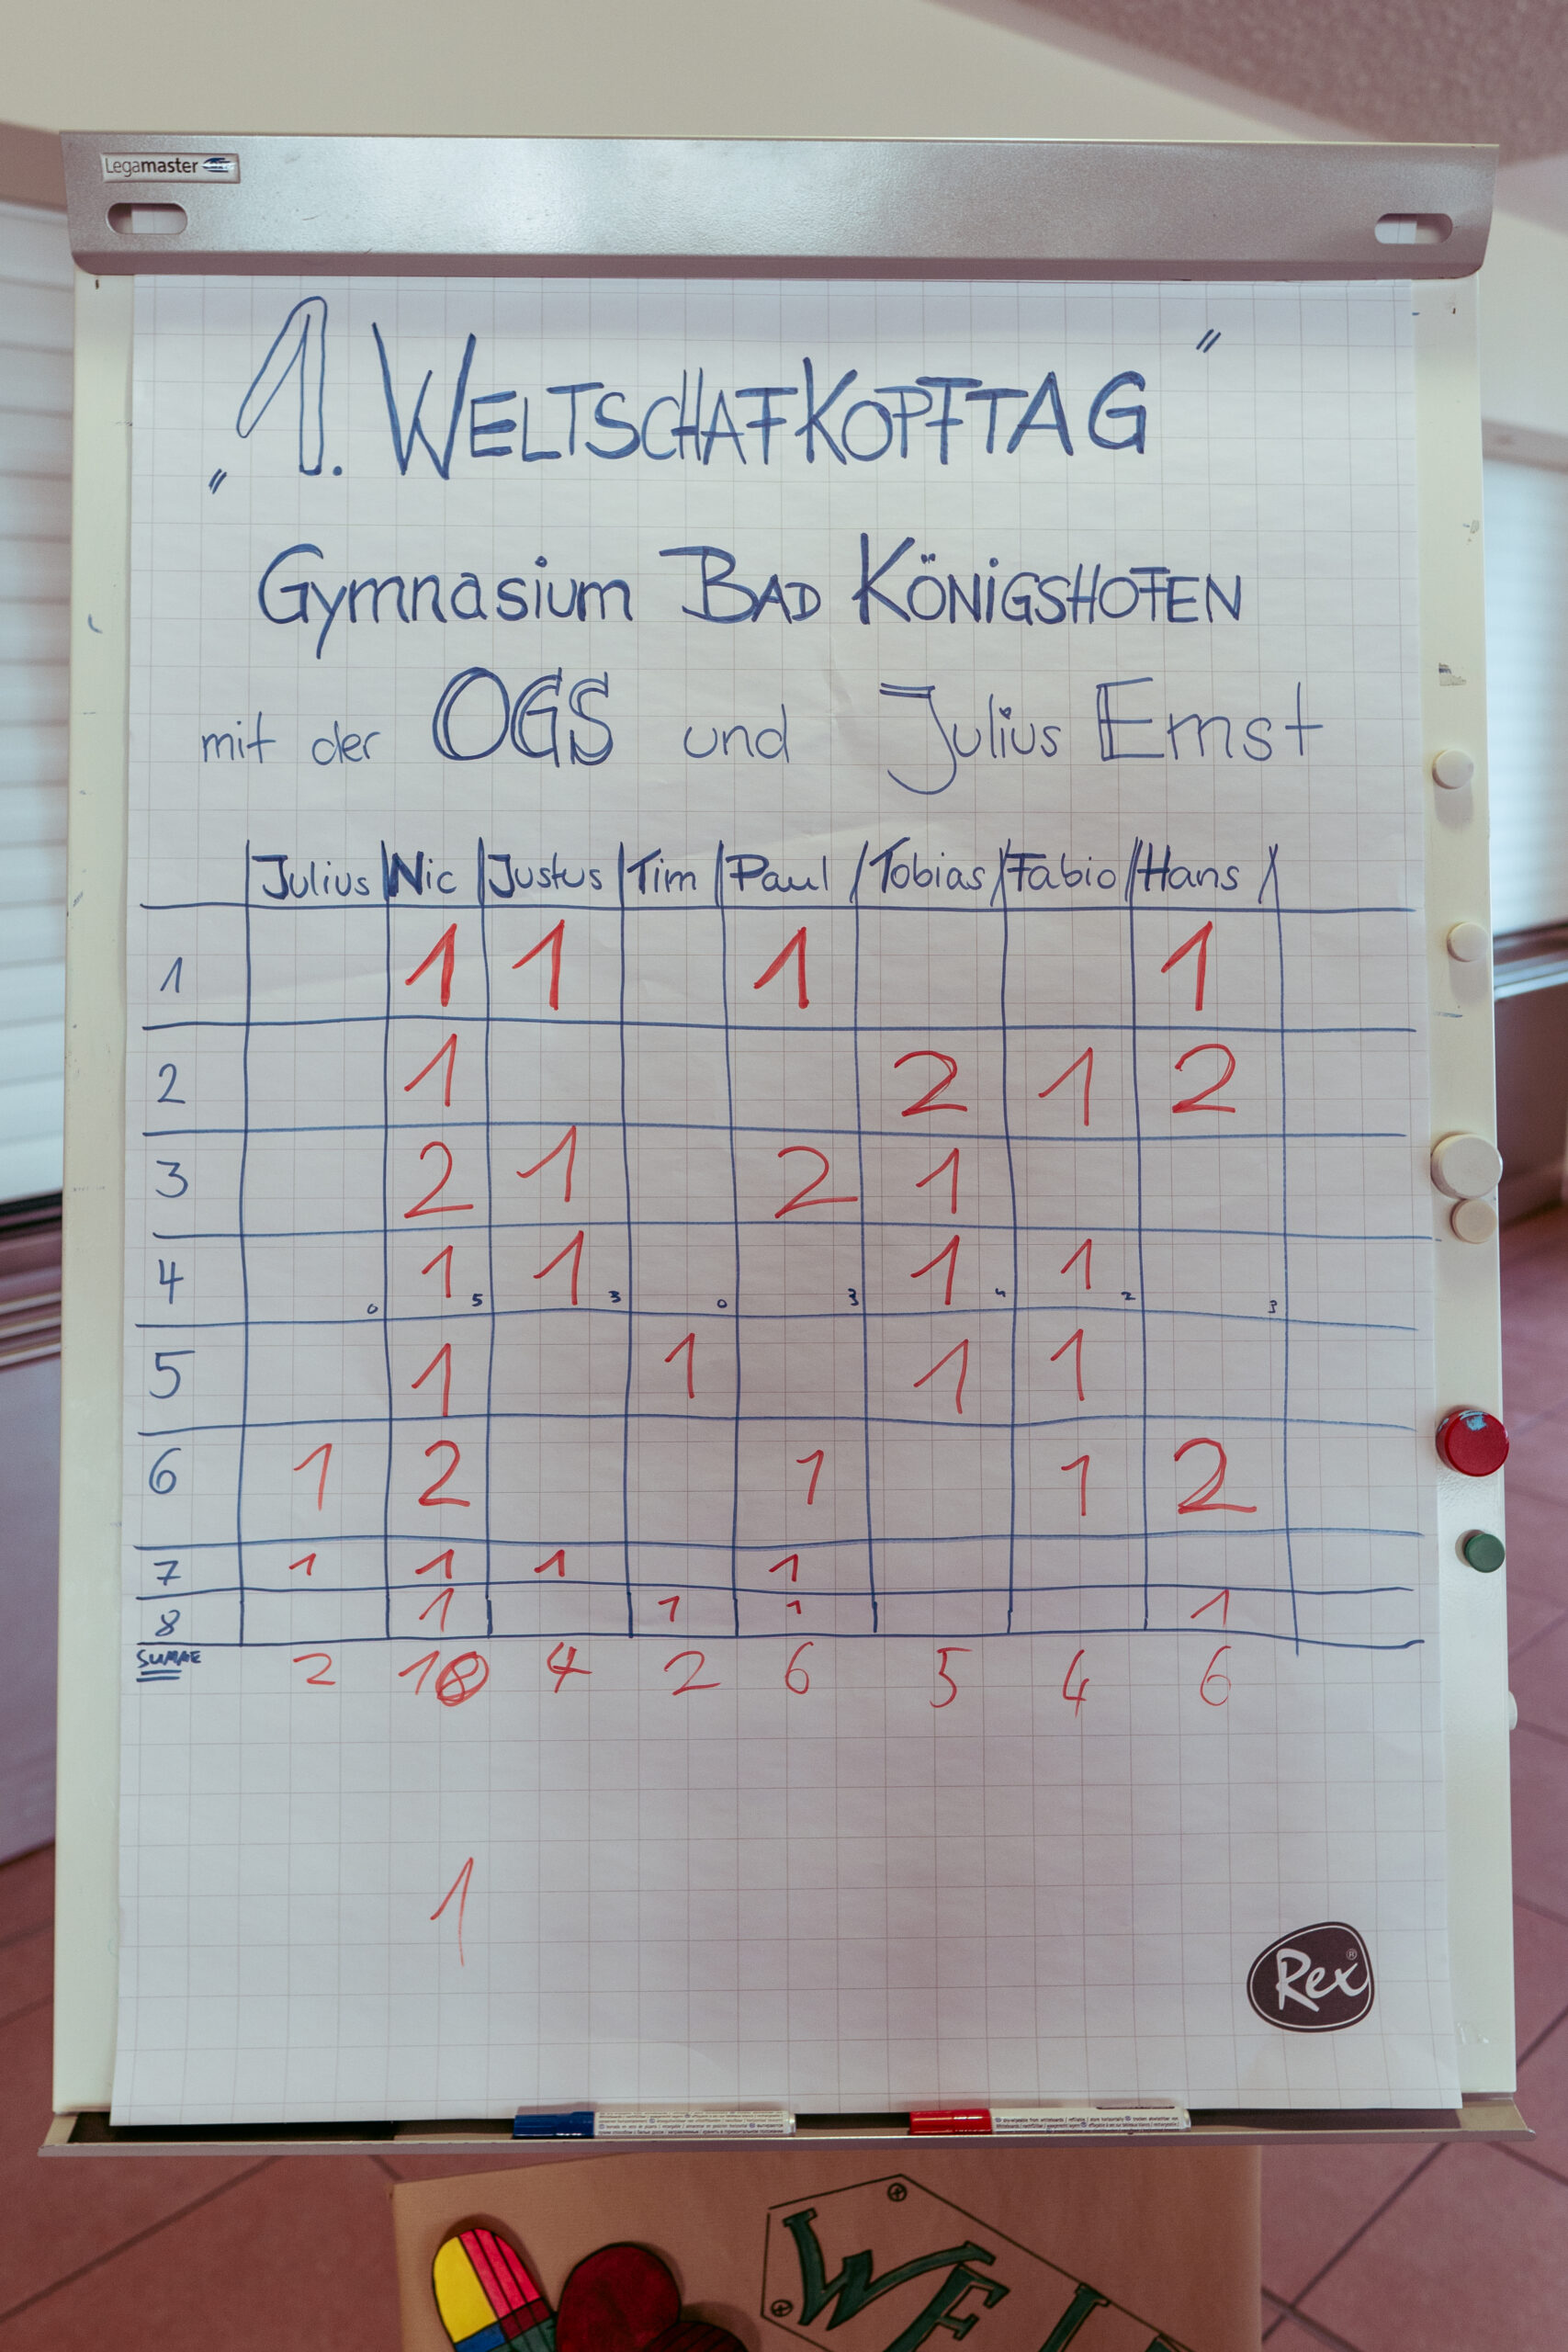 Legamaster
„1. WELTSCHAFKOPFTAG"
Gymnasium BAD KÖNIGSHOFEN
mit der OGS und Julius Ernst
Julius Nic Justus Tim Paul Tobias Fabio Hans
1 1 1 1 1
2 1 2 1 2
3 2 1 2 1
4 1 1 1 1
0 5 3 0 3 4 2 3
5 1 1 1 1
6 1 2 1 1 2
7 1 1 1 1
8 1 1 1 1
SUMME 2 10 4 2 6 5 4 6
1
Rex®